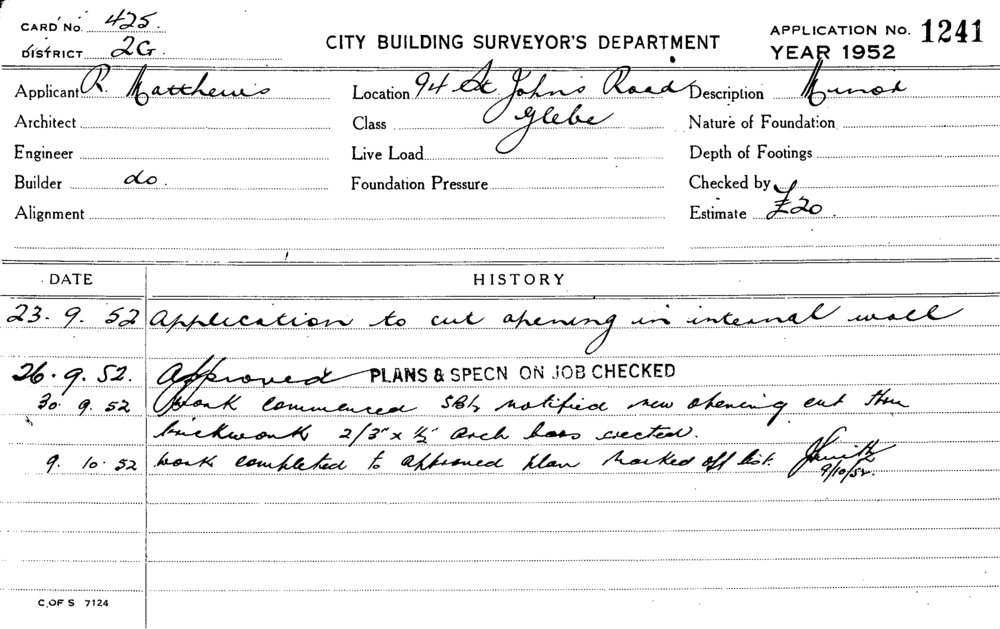 CARD No. 425.
DISTRICT 2G.
CITY BUILDING SURVEYOR'S DEPARTMENT
APPLICATION No. 1241
YEAR 1952
Applicant R. Matthews
Location 94 St. Johns Road Glebe
Description Minor
Architect
Class
Nature of Foundation
Engineer
Live Load
Depth of Footings
Builder do.
Foundation Pressure
Checked by
Alignment
Estimate £20.
DATE HISTORY
23. 9. 52 Application to cut opening in internal wall
26. 9. 52. Approved PLANS & SPECN ON JOB CHECKED
30. 9. 52 work commenced notified new opening cut thru
brickwork 2/3" x ½" arch bars erected.
9. 10. 52 work completed to approved plan marked off list.
9/10/52.
C. OF S 7124